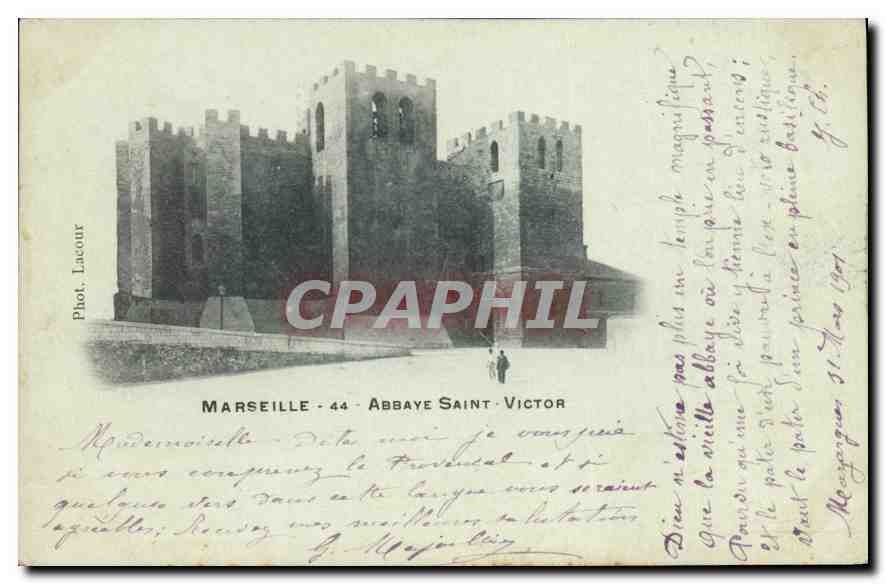 Phot. Lacour
CPAPHIL
MARSEILLE - 44 - ABBAYE SAINT-VICTOR
Mademoiselle - Dites moi je vous prie
si vous comprenez le Provençal et si
quelques vers dans cette langue vous seraient
agréables; Recevez mes meilleures salutations
G.
Dieu n'estime pas plus un temple magnifique
Que la vieille abbaye où l'on prie en passant,
Pourvu qu'une foi vive y tienne lieu d'encens;
et le pater d'un pauvre à l'ex-voto rustique,
Vaut le pater d'un prince en pleine basilique.
Mazargues 31 Mars 1901